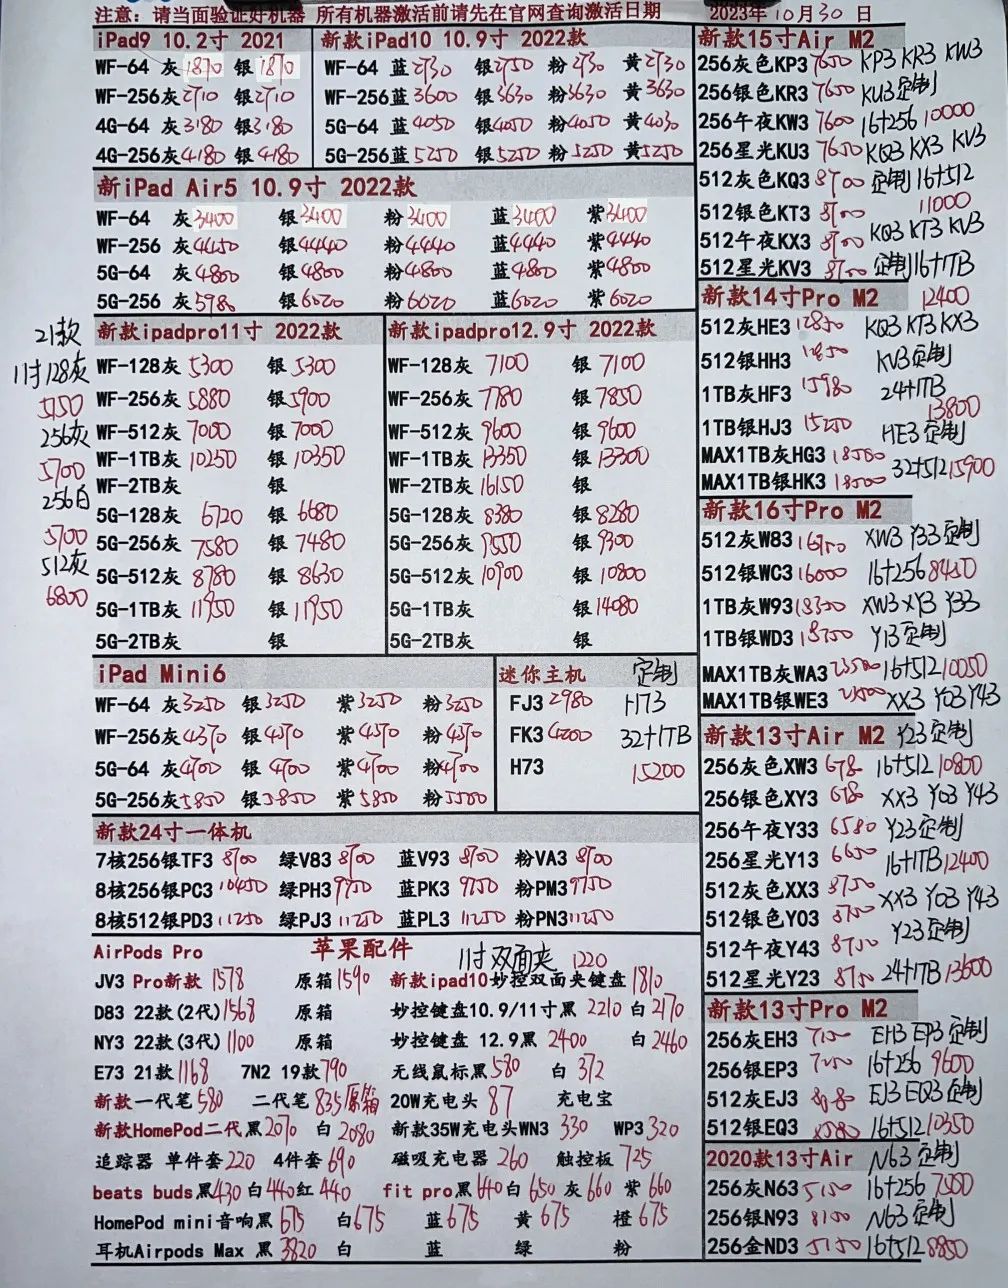 注意：请当面验证好机器 所有机器激活前请先在官网查询激活日期
2023年10月30日
iPad9 10.2寸 2021
WF-64 灰1870 银1870
WF-256灰2710 银2710
4G-64 灰3180 银3180
4G-256灰4180 银4180
新款iPad10 10.9寸 2022款
WF-64 蓝2730 银2750 粉2730 黄2730
WF-256蓝3600 银3630 粉3630 黄3630
5G-64 蓝4050 银4050 粉4050 黄4030
5G-256蓝5250 银5250 粉5250 黄5250
新iPad Air5 10.9寸 2022款
WF-64 灰3400 银3400 粉3400 蓝3400 紫3400
WF-256 灰4450 银4440 粉4440 蓝4440 紫4440
5G-64 灰4800 银4800 粉4800 蓝4800 紫4800
5G-256 灰5980 银6020 粉6020 蓝6020 紫6020
21款
11寸128灰
5150
256灰
5700
256白
5700
512灰
6800
新款ipadpro11寸 2022款
WF-128灰 5300 银 5300
WF-256灰 5880 银 5900
WF-512灰 7000 银 7000
WF-1TB灰 10250 银 10350
WF-2TB灰 银
5G-128灰 6720 银 6680
5G-256灰 7580 银 7480
5G-512灰 8780 银 8630
5G-1TB灰 11950 银 11950
5G-2TB灰 银
新款ipadpro12.9寸 2022款
WF-128灰 7100 银 7100
WF-256灰 7780 银 7850
WF-512灰 9600 银 9600
WF-1TB灰 13350 银 13300
WF-2TB灰 16150 银
5G-128灰 8380 银 8280
5G-256灰 银 9300
5G-512灰 10900 银 10800
5G-1TB灰 银 14080
5G-2TB灰 银
iPad Mini6
WF-64 灰3250 银3250 紫3250 粉3250
WF-256灰4370 银4370 紫4370 粉4370
5G-64 灰4700 银4700 紫4700 粉4700
5G-256灰5850 银5850 紫5850 粉5500
迷你主机 定制
FJ3 2980 H73
FK3 4200 32+1TB
H73 15200
新款24寸一体机
7核256银TF3 8700 绿V83 8700 蓝V93 8700 粉VA3 8700
8核256银PC3 10450 绿PH3 9750 蓝PK3 9750 粉PM3 9750
8核512银PD3 11250 绿PJ3 11250 蓝PL3 11250 粉PN3 11250
AirPods Pro 苹果配件 11寸双面夹 1220
JV3 Pro新款 1578 原箱1590 新款ipad10妙控双面夹键盘1810
D83 22款(2代)1568 原箱 妙控键盘10.9/11寸黑 2210 白2170
NY3 22款(3代)1100 原箱 妙控键盘 12.9黑 2400 白2460
E73 21款1168 7N2 19款790 无线鼠标黑580 白 372
新款一代笔580 二代笔835原箱 20W充电头 87 充电宝
新款HomePod二代黑2070 白 2080 新款35W充电头WN3 330 WP3 320
追踪器 单件套220 4件套690 磁吸充电器 260 触控板 725
beats buds黑430白440红 440 fit pro黑640白 650 灰 660 紫 660
HomePod mini音响黑 675 白675 蓝675 黄 675 橙675
耳机Airpods Max 黑 3820 白 蓝 绿 粉
新款15寸Air M2
256灰色KP3 7650 KP3 KR3 KW3
256银色KR3 7650 KU3定制
256午夜KW3 7600 16+256 10000
256星光KU3 7650 KQ3 KX3 KV3
512灰色KQ3 8700 定制16+512
512银色KT3 8700 11000
512午夜KX3 8700 KQ3 KT3 KV3
512星光KV3 8700 定制16+1TB
新款14寸Pro M2 12400
512灰HE3 12850 KQ3 KT3 KX3
512银HH3 12850 KV3定制
1TB灰HF3 15980 24+1TB
13800
1TB银HJ3 15250 HE3定制
MAX1TB灰HG3 18500 32+512 15900
MAX1TB银HK3 18500
新款16寸Pro M2
512灰W83 XW3 Y33定制
512银WC3 16000 16+256 8450
1TB灰W93 18350 XW3 XY3 Y33
1TB银WD3 18750 Y13定制
MAX1TB灰WA3 23500 16+512 10050
MAX1TB银WE3 XX3 Y03 Y43
新款13寸Air M2 Y23定制
256灰色XW3 16+512 10800
256银色XY3 XX3 Y03 Y43
256午夜Y33 6580 Y23定制
256星光Y13 6650 16+1TB 12400
512灰色XX3 8750 XX3 Y03 Y43
512银色Y03 8700 Y23定制
512午夜Y43 8700
512星光Y23 8700 24+1TB 13600
新款13寸Pro M2
256灰EH3 EH3 EP3定制
256银EP3 16+256 9600
512灰EJ3 EJ3 EQ3定制
512银EQ3 16+512 10350
2020款13寸Air N63定制
256灰N63 5150 16+256
256银N93 N63定制
256金ND3 5150 16+512 8850